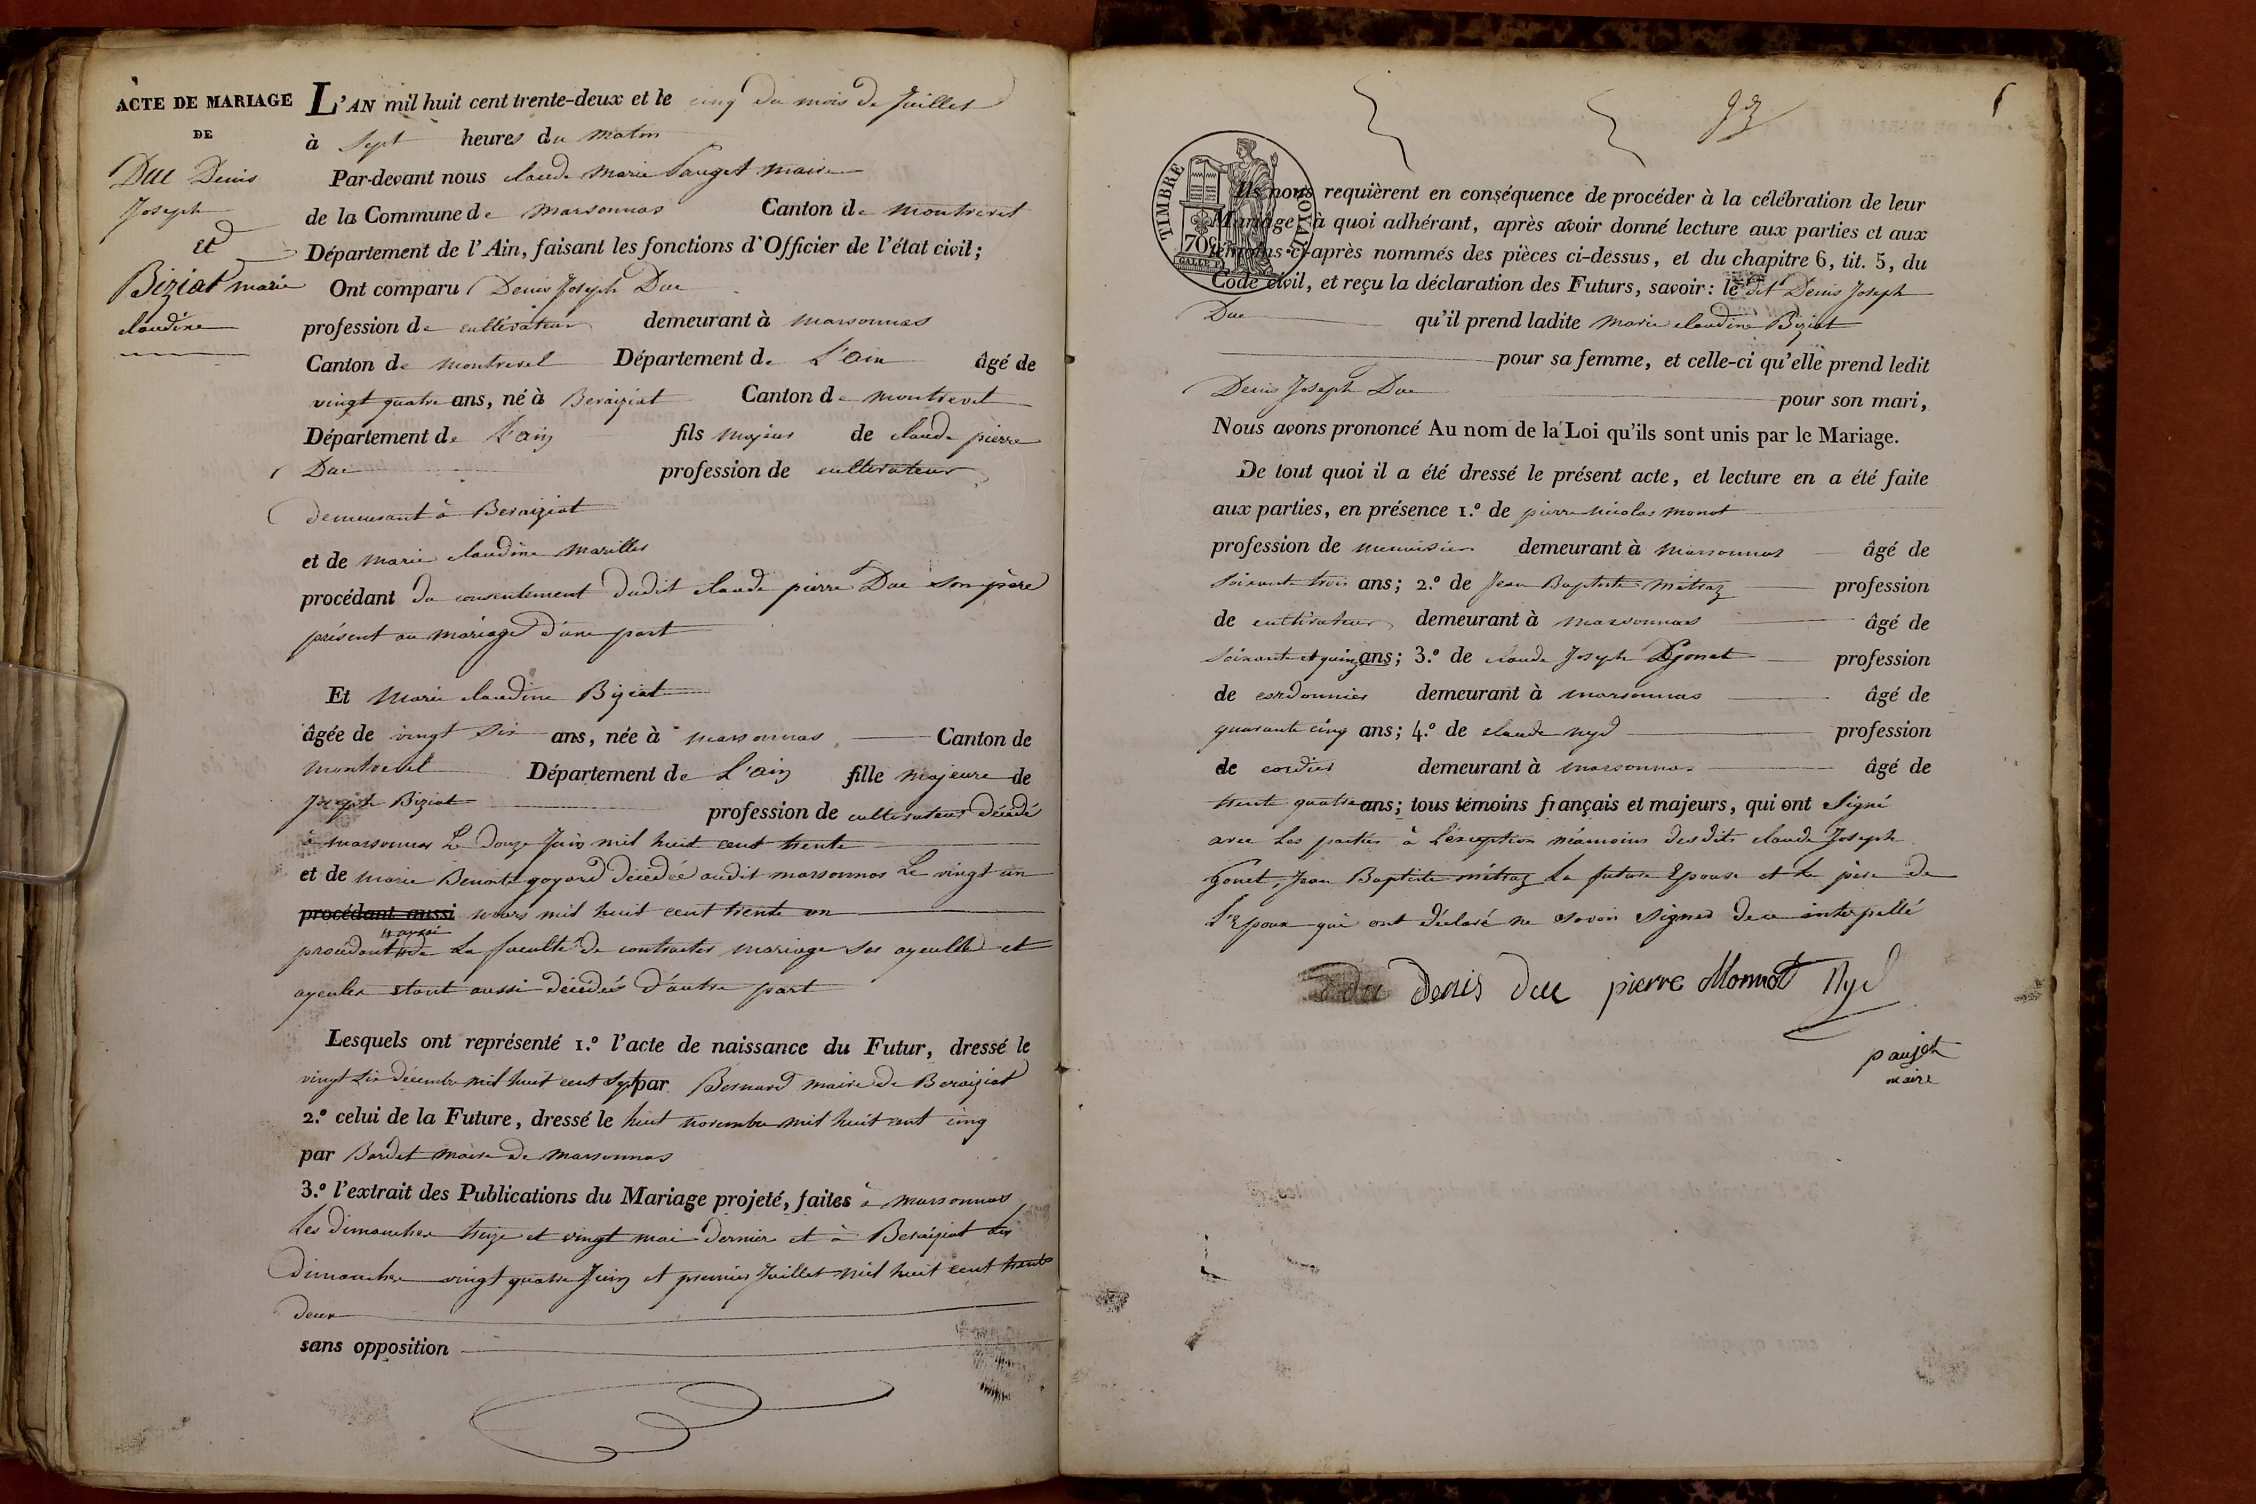 ACTE DE MARIAGE
DE
Duc Denis
Joseph
et
Biziat marie
claudine
L'AN mil huit cent trente-deux et le cinq du mois de Juillet
à sept heures du matin
Par-devant nous claude marie Pauget maire
de la Commune de marsonnas Canton de montrevel
Département de l'Ain, faisant les fonctions d'Officier de l'état civil;
Ont comparu Denis Joseph Duc
profession de cultivateur demeurant à marsonnas
Canton de montrevel Département de L'ain âgé de
vingt quatre ans, né à Beraiziat Canton de montrevel
Département de L'ain fils majeur de claude pierre
Duc profession de cultivateur
demeurant à Beraiziat
et de marie claudine
procédant du consentement dudit claude pierre Duc son père
présent au mariage d'une part
Et Marie claudine Biziat
âgée de vingt six ans, née à marsonnas Canton de
montrevel Département de L'ain fille majeure de
Joseph Biziat profession de cultivateur décédé
à marsonnas Le douze Juin mil huit cent trente
et de marie Benoite goyard décédée audit marsonnas Le vingt un
procédant aussi mars mil huit cent trente un
aussi
procédant de La faculté de contracter mariage ses ayeulles et
ayeules étant aussi décédés d'autre part
Lesquels ont représenté 1.º l'acte de naissance du Futur, dressé le
vingt six décembre mil huit cent sept par Bernard maire de Beraiziat
2.º celui de la Future, dressé le huit novembre mil huit cent cinq
par Bordet maire de marsonnas
3.º l'extrait des Publications du Mariage projeté, faites à marsonnas
Les dimanches treize et vingt mai dernier et à Beraiziat les
dimanches vingt quatre Juin et premier Juillet mil huit cent trente
deux
sans opposition
93
TIMBRE ROYAL
70
Ils nous requièrent en conséquence de procéder à la célébration de leur
Mariage; à quoi adhérant, après avoir donné lecture aux parties et aux
témoins ci-après nommés des pièces ci-dessus, et du chapitre 6, tit. 5, du
Code civil, et reçu la déclaration des Futurs, savoir: ledit Denis Joseph
Duc qu'il prend ladite marie claudine Biziat
pour sa femme, et celle-ci qu'elle prend ledit
Denis Joseph Duc pour son mari,
Nous avons prononcé Au nom de la Loi qu'ils sont unis par le Mariage.
De tout quoi il a été dressé le présent acte, et lecture en a été faite
aux parties, en présence 1.º de pierre nicolas monot
profession de menuisier demeurant à marsonnas âgé de
soixante trois ans; 2.º de Jean Baptiste métraz profession
de cultivateur demeurant à marsonnas âgé de
soixante et quinze ans; 3.º de claude Joseph gonet profession
de cordonnier demeurant à marsonnas âgé de
quarante cinq ans; 4.º de claude nyd profession
de cordier demeurant à marsonnas âgé de
trente quatre ans; tous témoins français et majeurs, qui ont signé
avec Les parties à L'exception néamoins desdits claude Joseph
gonet, Jean Baptiste métraz La future Epouse et Le père de
L'Epoux qui ont déclaré ne savoir signer de ce interpellé
Denis duc pierre Monnot Nyd
paujet
maire